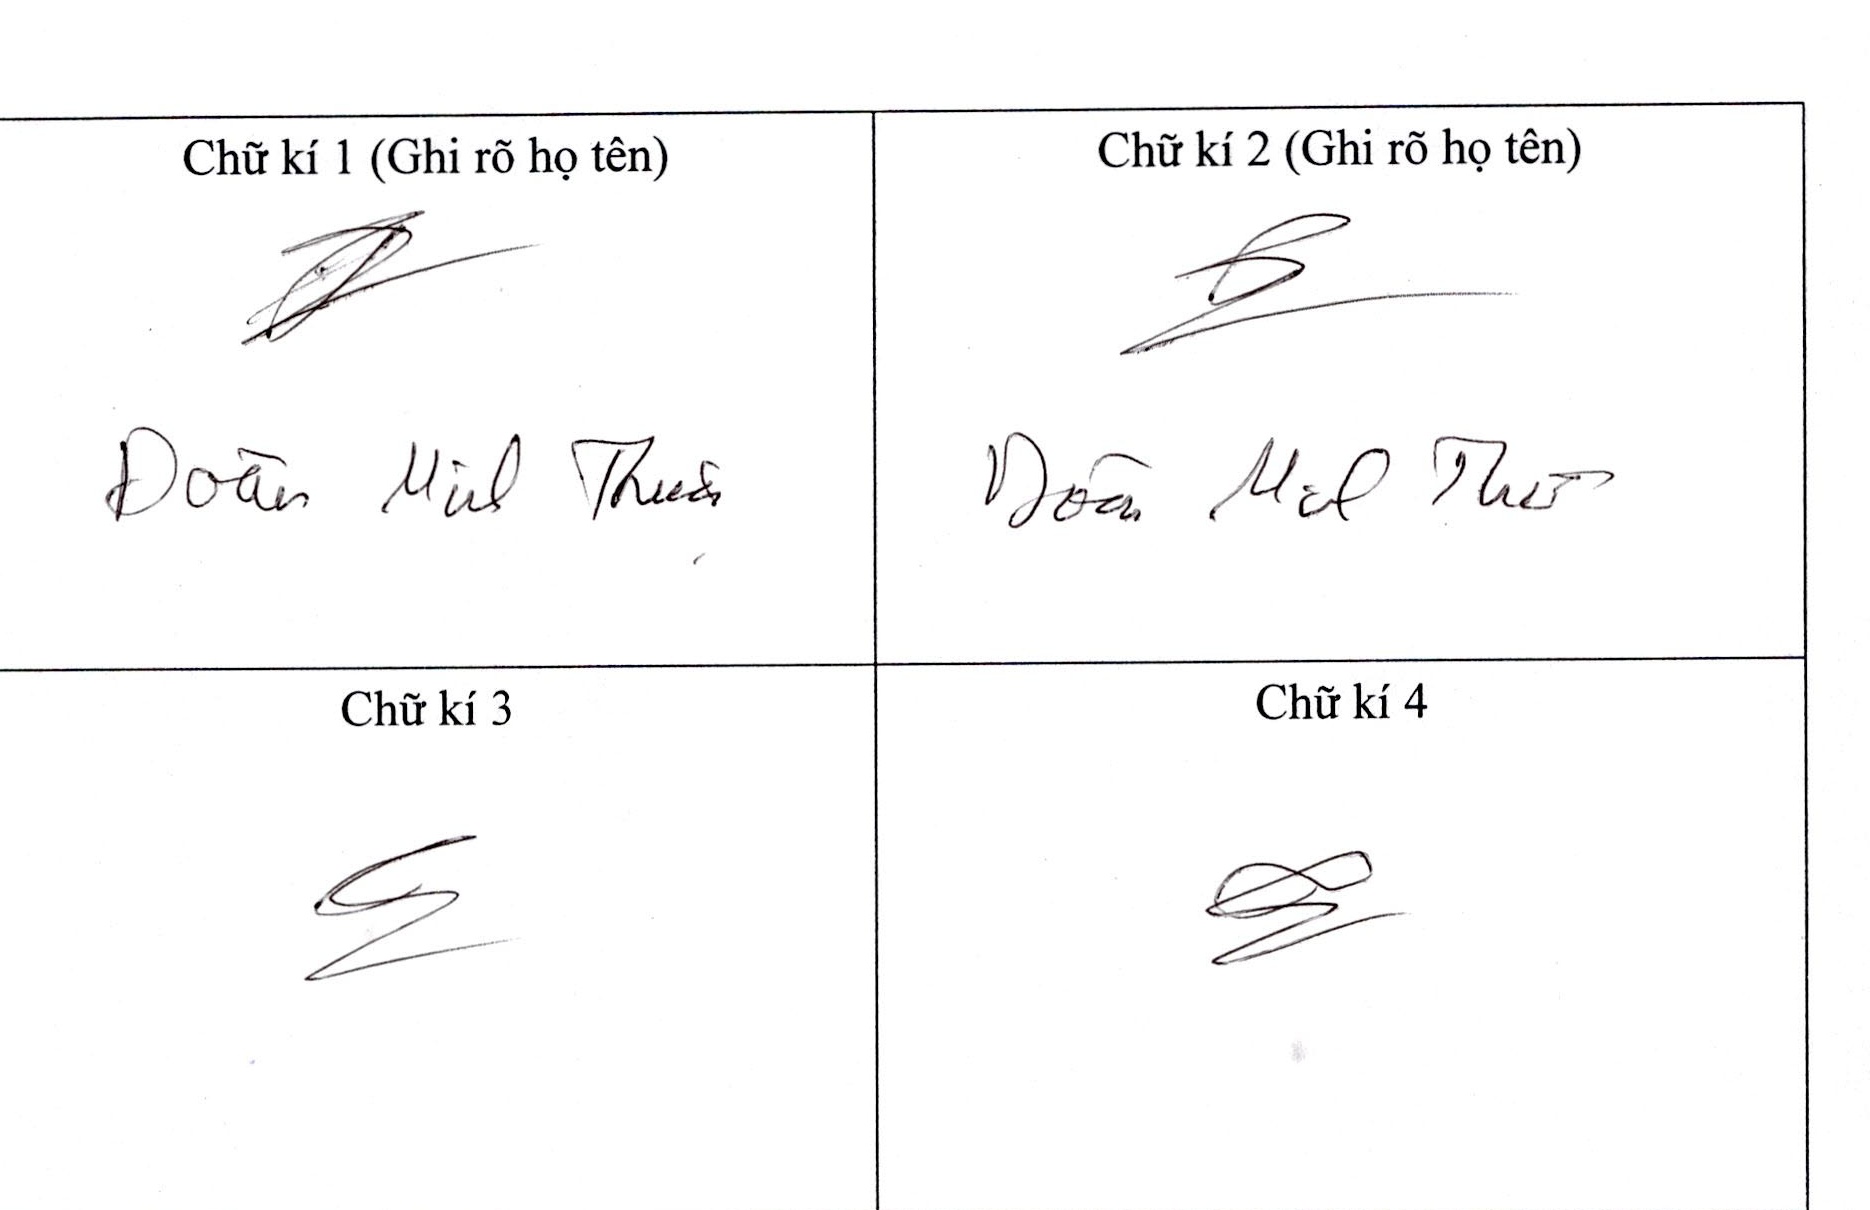 Chữ kí 1 (Ghi rõ họ tên)
Chữ kí 2 (Ghi rõ họ tên)
Đoàn Minh
Đoàn Minh
Chữ kí 3
Chữ kí 4